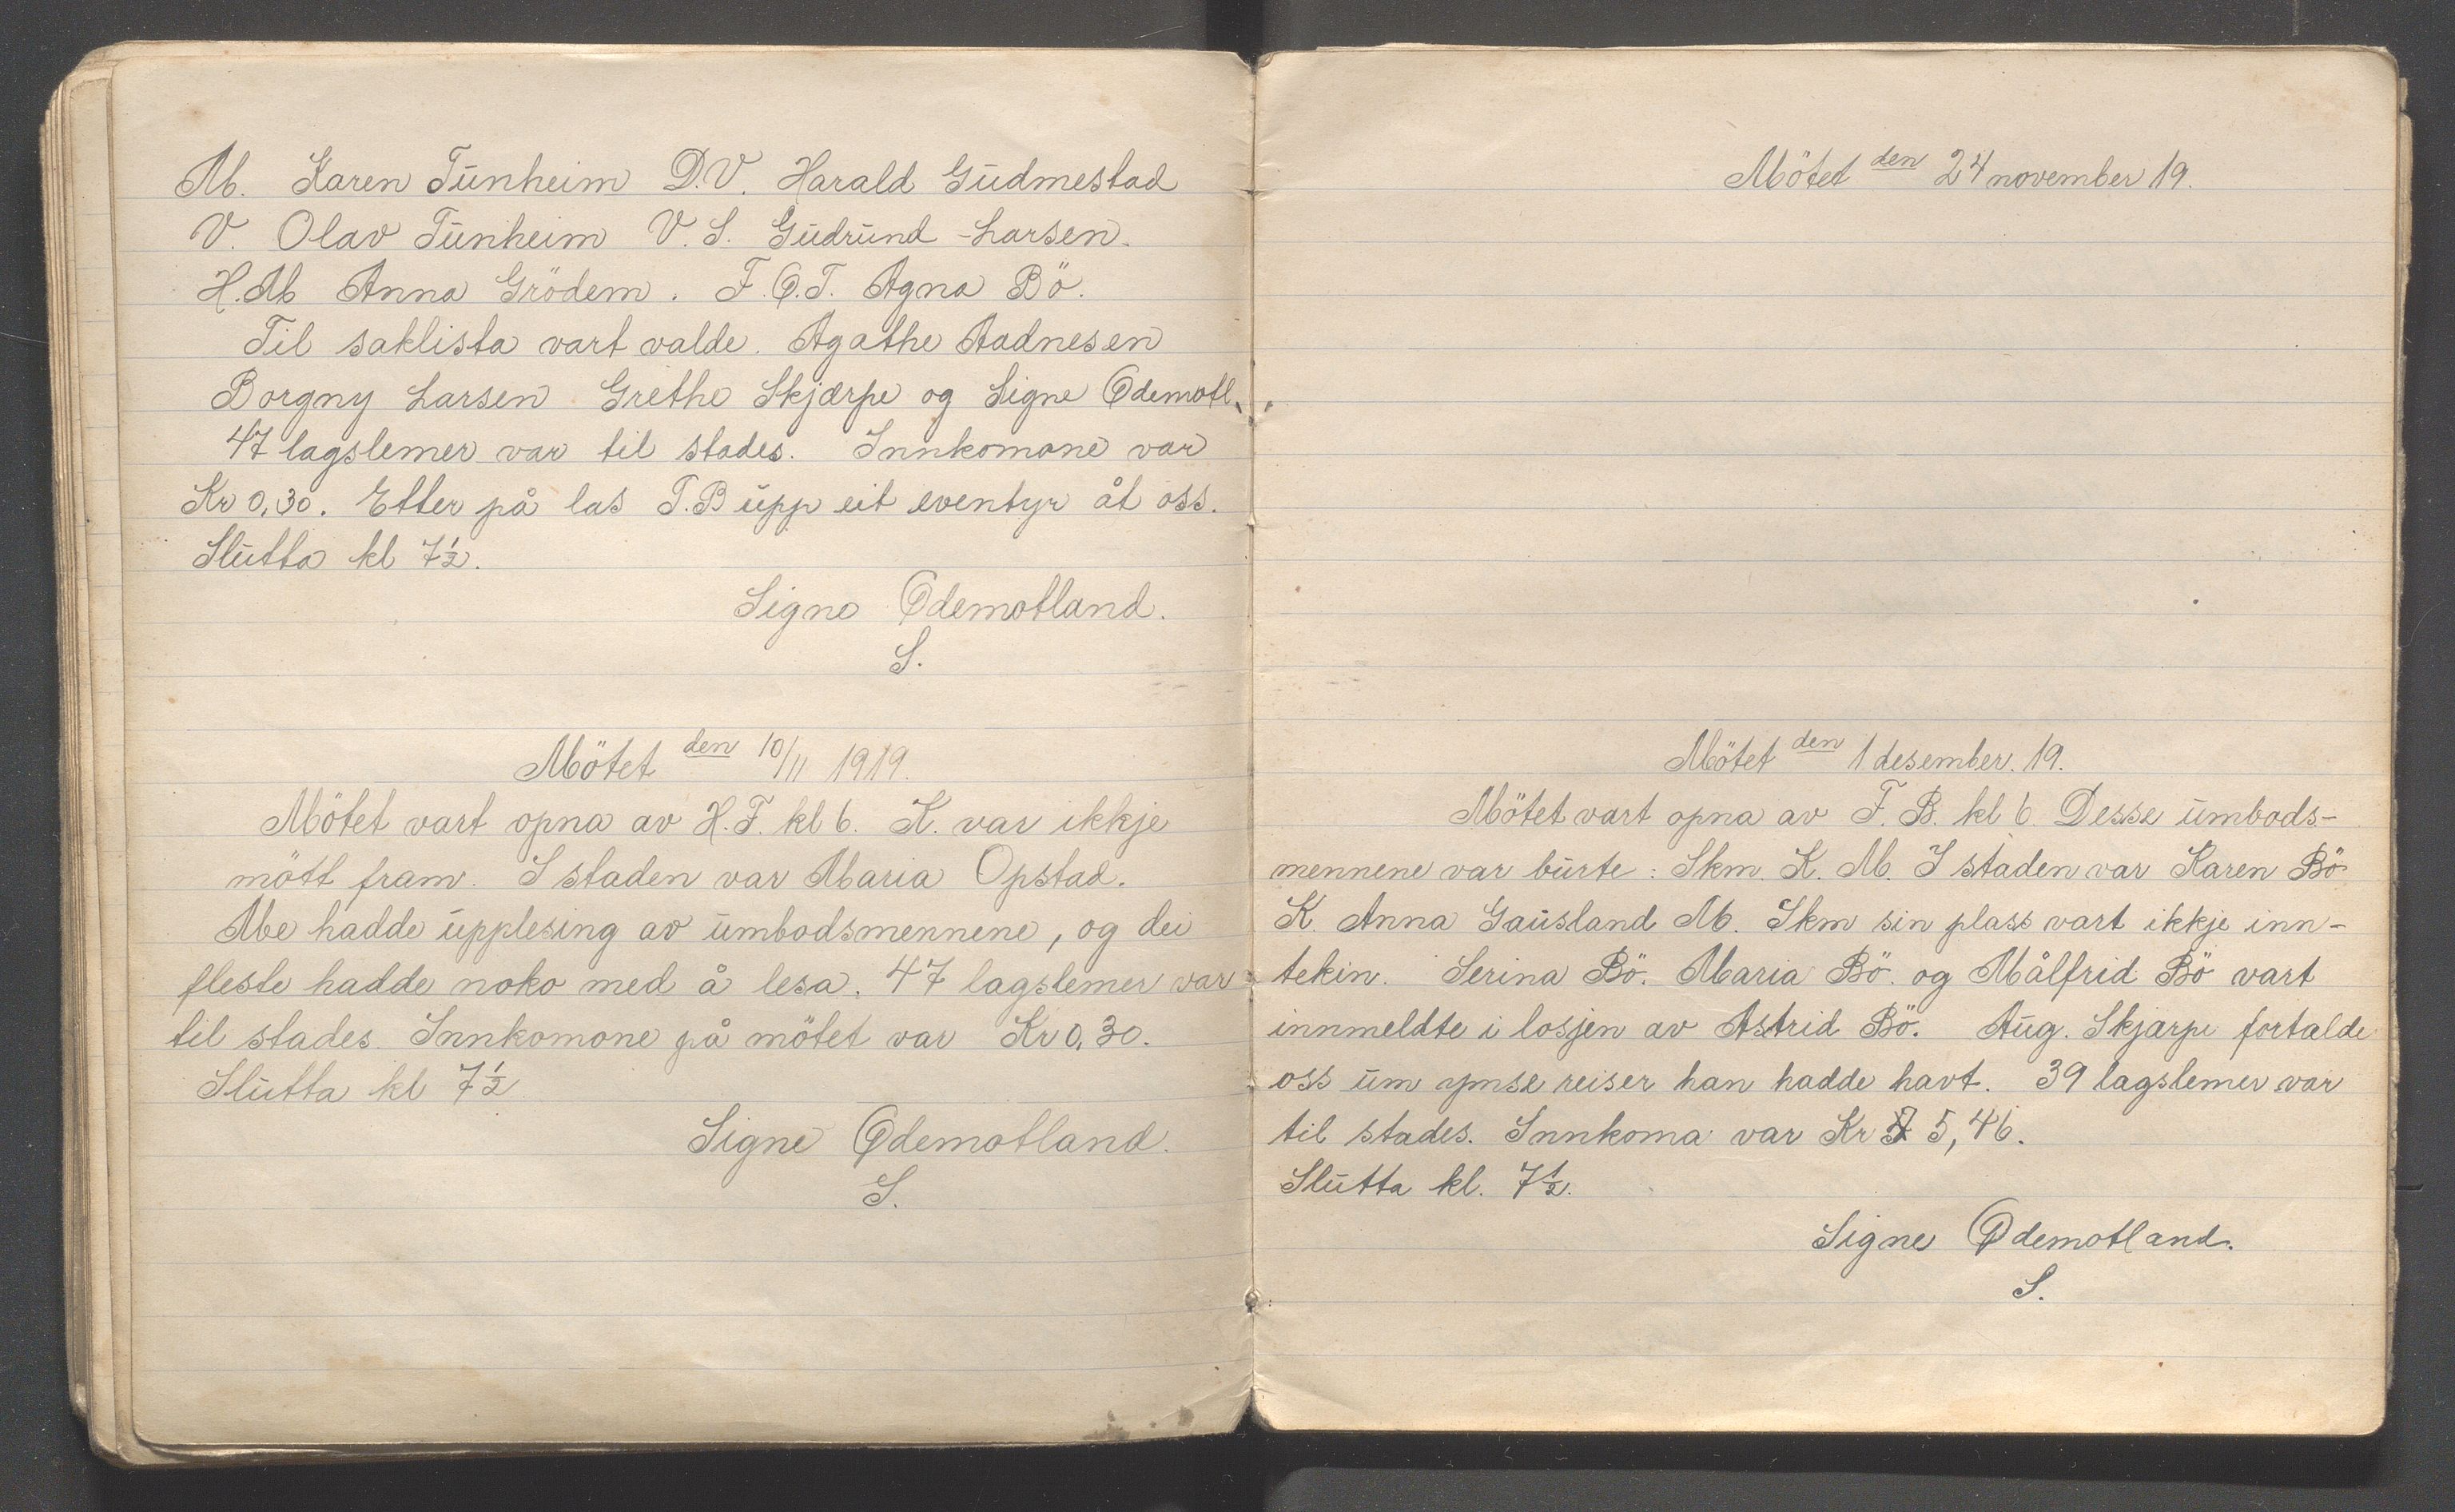 M. Karen Tunheim D.V. Harald Gudmestad
V. Olav Tunheim V.S. Gudrund Larsen.
H.M Anna Grödem. F.Ø.T. Agna Bö.
Til saklista vart valde. Agathe Aadnesen
Borgny Larsen Grethe Skjærpe og Signe Ødemotl.
47 lagslemer var til stades. Innkomone var
Kr 0,30. Etter på las T.B upp eit eventyr åt oss.
Slutta kl 7½.
Signe Ødemotland.
S.
Mötet den 10/11 1919.
Mötet vart opna av H.F. kl 6. K. var ikkje
mött fram. I staden var Maria Opstad.
Me hadde upplesing av umbodsmennene, og dei
fleste hadde noko med å lesa. 47 lagslemer var
til stades. Innkomone på mötet var Kr 0,30.
Slutta kl 7½
Signe Ødemotland.
S.
Mötet den 24 november 19.
Mötet den 1 desember. 19.
Mötet vart opna av F.B. kl 6. Desse umbods-
mennene var burte: Skm. K. M. I staden var Karen Bö
K. Anna Gausland M. Skm sin plass vart ikkje inn-
tekin. Serina Bö. Maria Bö. og Målfrid Bö vart
innmeldte i losjen av Astrid Bö. Aug. Skjærpe fortalde
oss um ymse reiser han hadde havt. 39 lagslemer var
til stades. Innkoma var Kr 5,46.
Slutta kl. 7½.
Signe Ødemotland.
S.